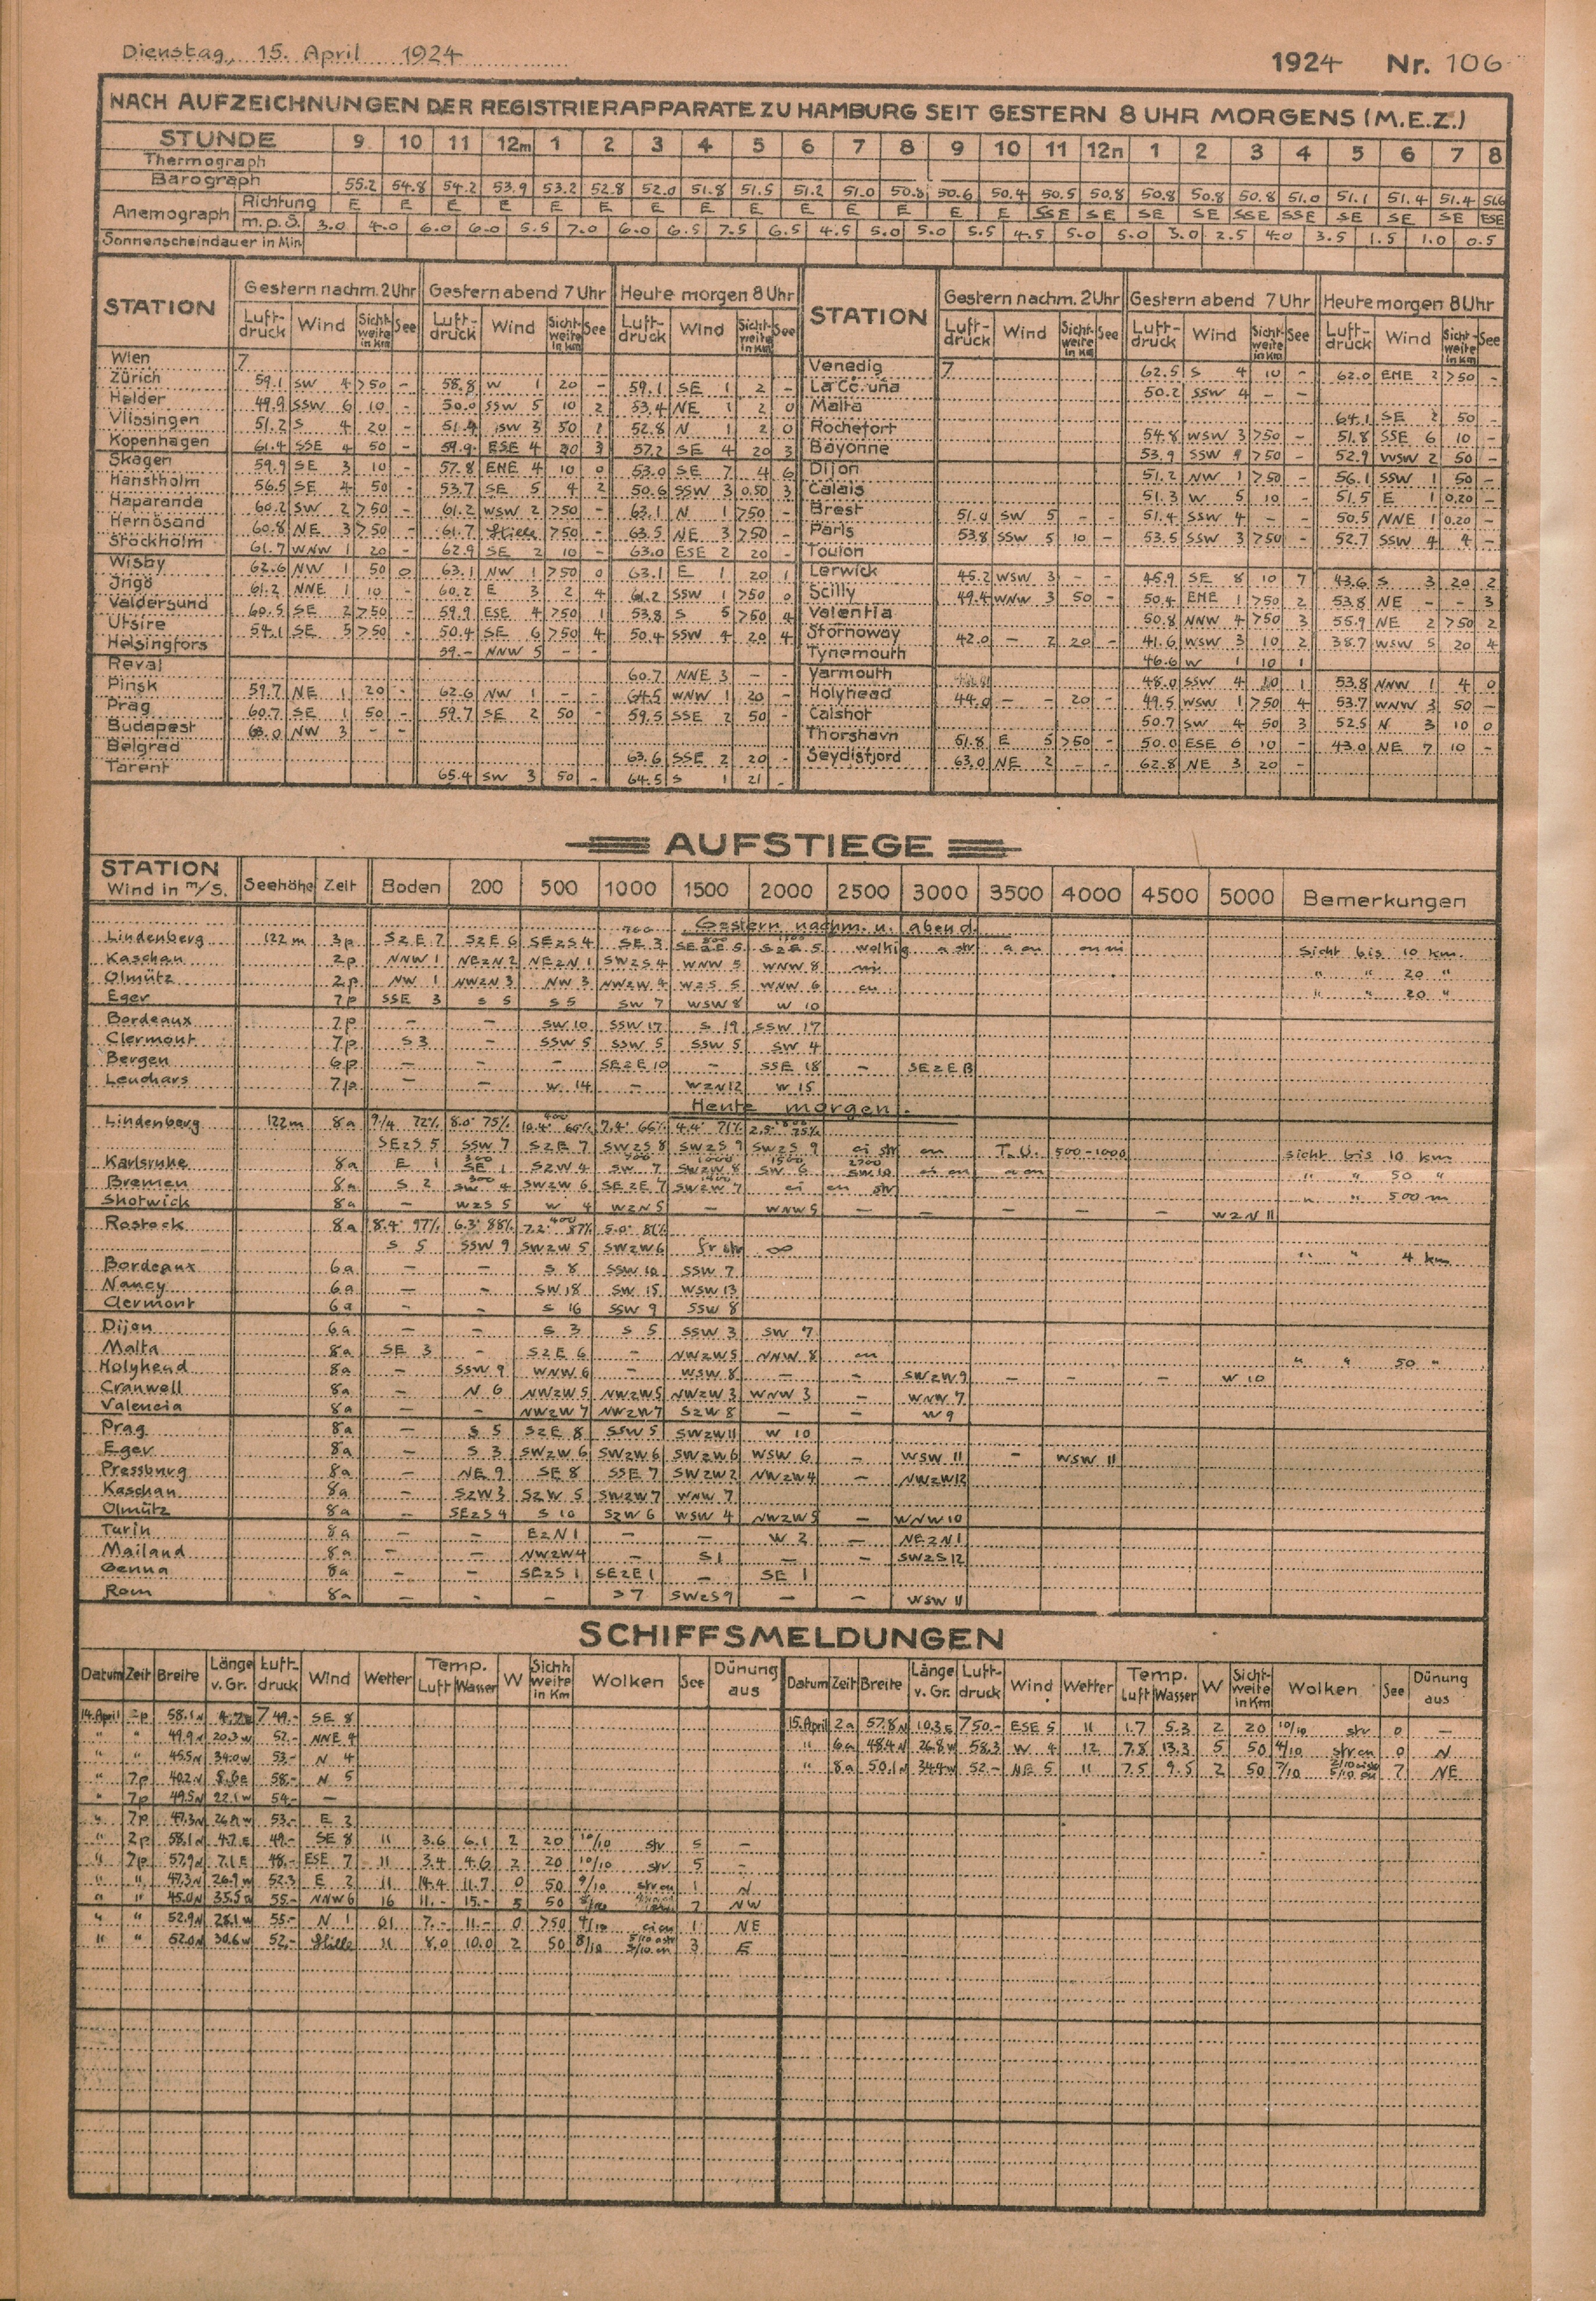 Dienstag, 15. April 1924 1924 Nr. 106
NACH AUFZEICHNUNGEN DER REGISTRIERAPPARATE ZU HAMBURG SEIT GESTERN 8 UHR MORGENS (M.E.Z.)
STUNDE 9 10 11 12m 1 2 3 4 5 6 7 8 9 10 11 12n 1 2 3 4 5 6 7 8
Thermograph
Barograph 55.2 54.8 54.2 53.9 53.2 52.8 52.0 51.8 51.5 51.2 51.0 50.8 50.6 50.4 50.5 50.8 50.8 50.8 50.8 51.0 51.1 51.4 51.4 51.6
Anemograph Richtung E E E E E E E E E E E E E E SSE SE SE SE SSE SSE SE SE SE ESE
m.p.S. 3.0 4.0 6.0 6.0 5.5 7.0 6.0 6.5 7.5 6.5 4.5 5.0 5.0 5.5 4.5 5.0 5.0 3.0 2.5 4.0 3.5 1.5 1.0 0.5
Sonnenscheindauer in Min
STATION Gestern nachm. 2 Uhr Gestern abend 7 Uhr Heute morgen 8 Uhr STATION Gestern nachm. 2 Uhr Gestern abend 7 Uhr Heute morgen 8 Uhr
Luftdruck Wind Sichtweite in Km See Luftdruck Wind Sichtweite in Km See Luftdruck Wind Sichtweite in Km See Luftdruck Wind Sichtweite in Km See Luftdruck Wind Sichtweite in Km See Luftdruck Wind Sichtweite in Km See
Wien 7
Zürich 59.1 SW 4 >50 - 58.8 W 1 20 - 59.1 SE 1 2 -
Helder 49.9 SSW 6 10 - 50.0 SSW 5 10 2 53.4 NE 1 2 0
Vlissingen 51.2 S 4 20 - 51.4 SW 3 50 1 52.8 N 1 2 0
Kopenhagen 61.4 SSE 4 50 - 59.9 ESE 4 20 3 57.2 SE 4 20 3
Skagen 59.9 SE 3 10 - 57.8 ENE 4 10 0 53.0 SE 7 4 6
Hanstholm 56.5 SE 4 50 - 53.7 SE 5 4 2 50.6 SSW 3 0.50 3
Haparanda 60.2 SW 2 >50 - 61.2 WSW 2 >50 - 63.1 N 1 >50 -
Hernösand 60.8 NE 3 >50 - 61.7 Stille >50 - 63.5 NE 3 >50 -
Stockholm 61.7 WNW 1 20 - 62.9 SE 2 10 - 63.0 ESE 2 20 -
Wisby 62.6 NW 1 50 0 63.1 NW 1 >50 0 63.1 E 1 20 1
Ingö 61.2 NNE 1 10 - 60.2 E 3 2 4 61.2 SSW 1 >50 0
Valdersund 60.5 SE 2 >50 - 59.9 ESE 4 >50 1 53.8 S 5 >50 4
Utsire 54.1 SE 5 >50 - 50.4 SE 6 >50 4 50.4 SSW 4 20 4
Helsingfors 59.- NNW 5 - -
Reval 60.7 NNE 3 - -
Pinsk 59.7 NE 1 20 - 62.6 NW 1 - - 64.5 WNW 1 20 -
Prag 60.7 SE 1 50 - 59.7 SE 2 50 - 59.5 SSE 2 50 -
Budapest 63.0 NW 3 - -
Belgrad 63.6 SSE 2 20 -
Tarent 65.4 SW 3 50 - 64.5 S 1 21 -
Venedig 7 62.5 S 4 10 - 62.0 ENE 2 >50 -
La Coruña 50.2 SSW 4 - -
Malta 64.1 SE 2 50 -
Rochefort 54.8 WSW 3 >50 - 51.8 SSE 6 10 -
Bayonne 53.9 SSW 9 >50 - 52.9 WSW 2 50 -
Dijon 51.2 NW 1 >50 - 56.1 SSW 1 50 -
Calais 51.3 W 5 10 - 51.5 E 1 0.20 -
Brest 51.0 SW 5 - - 51.4 SSW 4 - - 50.5 NNE 1 0.20 -
Paris 53.8 SSW 5 10 - 53.5 SSW 3 >50 - 52.7 SSW 4 4 -
Toulon
Lerwick 45.2 WSW 3 - - 45.9 SE 8 10 7 43.6 S 3 20 2
Scilly 49.4 WNW 3 50 - 50.4 ENE 1 >50 2 53.8 NE - - 3
Valentia 50.8 NNW 4 >50 3 55.9 NE 2 >50 2
Stornoway 42.0 - 2 20 - 41.6 WSW 3 10 2 38.7 WSW 5 20 4
Tynemouth 46.6 W 1 10 1
Yarmouth 48.0 SSW 4 10 1 53.8 NNW 1 4 0
Holyhead 44.0 - - 20 - 49.5 WSW 1 >50 4 53.7 WNW 3 50 -
Calshot 50.7 SW 4 50 3 52.5 N 3 10 0
Thorshavn 51.8 E 5 >50 - 50.0 ESE 6 10 - 43.0 NE 7 10 -
Seydisfjord 63.0 NE 2 - - 62.8 NE 3 20 -
AUFSTIEGE
STATION Wind in m/S. Seehöhe Zeit Boden 200 500 1000 1500 2000 2500 3000 3500 4000 4500 5000 Bemerkungen
Gestern nachm. u. abend.
Lindenberg 122 m 3p SzE 7 SzE 6 SEzS 4 SE 3 SzE 5 wolkig a str a cu cu ni Sicht bis 10 km.
Kaschau 2p NNW 1 NEzN 2 NEzN 1 SWzS 4 WNW 5 WNW 8 ni " " 20 "
Olmütz 2p NW 1 NWzN 3 NW 3 NWzW 4 WzS 5 WNW 6 cu " " 20 "
Eger 7p SSE 3 S 5 S 5 SW 7 WSW 8 W 10
Bordeaux 7p - - SW 10 SSW 17 S 19 SSW 17
Clermont 7p S 3 - SSW 5 SSW 5 SSW 5 SW 4
Bergen 6p - - - SEzE 10 - SSE 18 - SEzE 13
Leuchars 7p - - W 14 - WzN 12 W 15
Heute morgen.
Lindenberg 122m 8a 9/4 72% 8.0° 75% 10.4° 60% 7.4° 66% 4.4° 71% 2.5° 75%
SEzS 5 SSW 7 SzE 7 SWzS 8 SWzS 9 SWzS 9 ci str cu T.U. 500-1000 Sicht bis 10 km
Karlsruhe 8a E 1 SE 1 SzW 4 SW 7 SWzW 8 SW 6 SW 10 ci cu a cu " " 50 "
Bremen 8a S 2 SW 4 SWzW 6 SEzE 7 SWzW 7 ci cu str " " 500 m
Shotwick 8a - WzS 5 W 4 WzN 5 - WNW 5 - - - - - WzN 11
Rostock 8a 8.4° 97% 6.3° 88% 7.2° 87% 5.0° 81%
S 5 SSW 9 SWzW 5 SWzW 6 fr str ∞ " " 4 km
Bordeaux 6a - - S 8 SSW 10 SSW 7
Nancy 6a - - SW 18 SW 15 WSW 13
Clermont 6a - - S 16 SSW 9 SSW 8
Dijon 6a - - S 3 S 5 SSW 3 SW 7
Malta 8a SE 3 - SzE 6 - NWzW 5 NNW 8 cu " " 50 "
Holyhead 8a - SSW 9 WNW 6 - WSW 8 - - SWzW 9 - - - W 10
Cranwell 8a - N 6 NWzW 5 NWzW 5 NWzW 3 WNW 3 - WNW 7
Valencia 8a - - NWzW 7 NWzW 7 SzW 8 - - W 9
Prag 8a - S 5 SzE 8 SSW 5 SWzW 11 W 10
Eger 8a - S 3 SWzW 6 SWzW 6 SWzW 6 WSW 6 - WSW 11 - WSW 11
Pressburg 8a - NE 9 SE 8 SSE 7 SWzW 2 NWzW 4 - NWzW 12
Kaschau 8a - SzW 3 SzW 5 SWzW 7 WNW 7
Olmütz 8a - SEzS 4 S 10 SzW 6 WSW 4 NWzW 5 - WNW 10
Turin 8a - - EzN 1 - - W 2 - NEzN 1
Mailand 8a - - NWzW 4 - S 1 - - SWzS 12
Genua 8a - - SEzS 1 SEzE 1 - SE 1
Rom 8a - - - S 7 SWzS 9 - - WSW 11
SCHIFFSMELDUNGEN
Datum Zeit Breite Länge v. Gr. Luftdruck Wind Wetter Temp. Luft Wasser W Sichtweite in Km Wolken See Dünung aus Datum Zeit Breite Länge v. Gr. Luftdruck Wind Wetter Temp. Luft Wasser W Sichtweite in Km Wolken See Dünung aus
14. April 2p 58.1 N 4.7 E 7 49.- SE 8
" " 49.9 N 20.3 W 52.- NNE 4
" " 45.5 N 34.0 W 53.- N 4
" 7p 40.2 N 8.6 E 58.- N 5
" 7p 49.5 N 22.1 W 54.- -
" 7p 47.3 N 26.9 W 53.- E 2
" 2p 58.1 N 4.7 E 49.- SE 8 11 3.6 6.1 2 20 10/10 str 5 -
" 7p 57.9 N 7.1 E 48.- ESE 7 11 3.4 4.6 2 20 10/10 str 5 -
" " 47.3 N 26.9 W 52.3 E 2 11 14.4 11.7 0 50 9/10 str cu 1 N
" " 45.0 N 35.5 W 55.- NNW 6 16 11.- 15.- 5 50 7 NW
" " 52.9 N 28.1 W 55.- N 1 01 7.- 11.- 0 >50 4/10 ci cu 1 NE
" " 52.0 N 30.6 W 52.- Stille 11 8.0 10.0 2 50 8/10 5/10 a str 3/10 cu 3 E
15. April 2a 57.8 N 10.3 E 7 50.- ESE 5 11 1.7 5.3 2 20 10/10 str 0 -
" 6a 48.4 N 26.8 W 58.3 W 4 12 7.8 13.3 5 50 4/10 str cu 0 N
" 8a 50.1 N 34.4 W 52.- NE 5 11 7.5 9.5 2 50 7/10 5/10 cu 7 NE